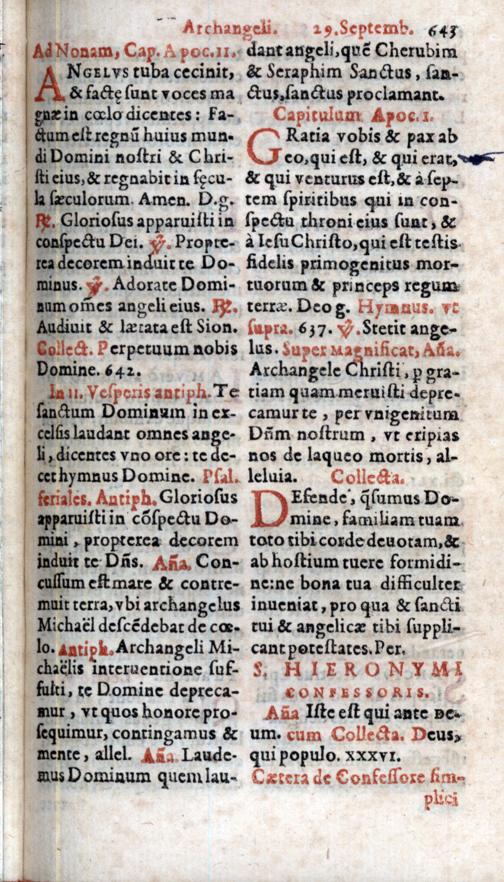 Archangeli. 29. Septemb. 643
Ad Nonam, Cap. Apoc. 11.
ANGELVS tuba cecinit,
& factę sunt voces ma
gnæ in cœlo dicentes: Fa-
ctum est regnũ huius mun-
di Domini nostri & Chri-
sti eius, & regnabit in sęcu-
la sæculorum. Amen. D.g.
℟. Gloriosus apparuisti in
conspectu Dei. ℣. Propte-
rea decorem induit te Do-
minus. ℣. Adorate Domi-
num om̃es angeli eius. ℟.
Audiuit & lætata est Sion.
Collect. Perpetuum nobis
Domine. 642.
In 11. Vesperis antiph. Te
sanctum Dominum in ex-
celsis laudant omnes ange-
li, dicentes vno ore: te de-
cet hymnus Domine. Psal.
feriales. Antiph. Gloriosus
apparuisti in cõspectu Do-
mini, propterea decorem
induit te Dñs. Aña. Con-
cussum est mare & contre-
muit terra, vbi archangelus
Michaël descẽdebat de cœ-
lo. Antiph. Archangeli Mi-
chaëlis interuentione suf-
fulti, te Domine depreca-
mur, vt quos honore pro-
sequimur, contingamus &
mente, allel. Aña. Laude-
mus Dominum quem lau-
dant angeli, quẽ Cherubim
& Seraphim Sanctus, san-
ctus, sanctus proclamant.
Capitulum Apoc. 1.
GRatia vobis & pax ab
eo, qui est, & qui erat,
& qui venturus est, & à sep-
tem spiritibus qui in con-
spectu throni eius sunt, &
à Iesu Christo, qui est testis
fidelis primogenitus mor-
tuorum & princeps regum
terræ. Deo g. Hymnus. vt
supra. 637. ℣. Stetit ange-
lus. Super Magnificat, Aña.
Archangele Christi, p gra-
tiam quam meruisti depre-
camur te, per vnigenitum
Dñm nostrum, vt eripias
nos de laqueo mortis, al-
leluia. Collecta.
DEfende, q̃sumus Do-
mine, familiam tuam
toto tibi corde deuotam, &
ab hostium tuere formidi-
ne: ne bona tua difficulter
inueniat, pro qua & sancti
tui & angelicæ tibi suppli-
cant potestates. Per.
S. HIERONYMI
CONFESSORIS.
Aña Iste est qui ante De-
um. cum Collecta. Deus,
qui populo. XXXVI.
Cætera de Confessore sim-
plici